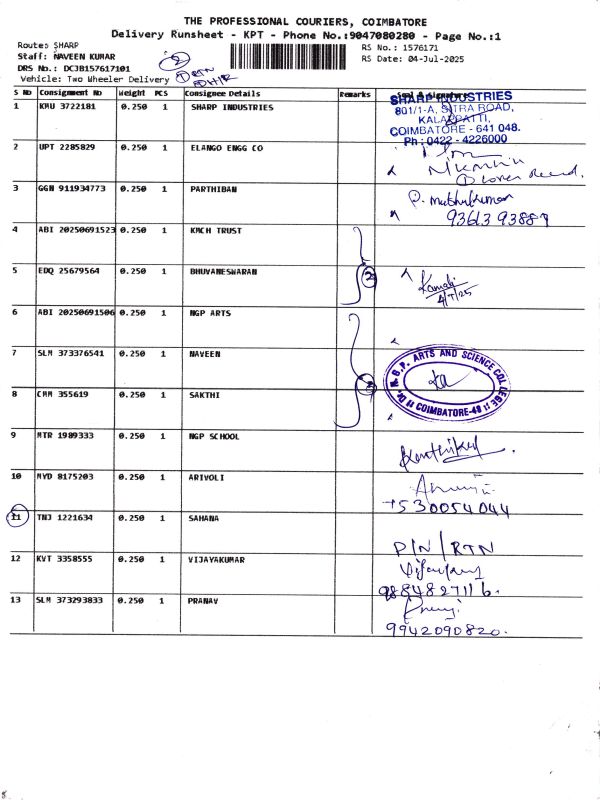 THE PROFESSIONAL COURIERS, COIMBATORE
Delivery Runsheet - KPT - Phone No.:9047080280 - Page No.:1
Route: SHARP
Staff: NAVEEN KUMAR
DRS No.: DCJB157617101
Vehicle: Two Wheeler Delivery
RS No.: 1576171
RS Date: 04-Jul-2025
2
S No Consignment No Weight PCS Consignee Details Remarks
1 KMU 3722181 0.250 1 SHARP INDUSTRIES
SHARP INDUSTRIES
801/1-A, SITRA ROAD,
KALAPATTI,
COIMBATORE - 641 048.
Ph : 0422 - 4226000
2 UPT 2285829 0.250 1 ELANGO ENGG CO
3 GGN 911934773 0.250 1 PARTHIBAN
P. muthukumar
93613 93889
4 ABI 20250691523 0.250 1 KMCH TRUST
5 EDQ 25679564 0.250 1 BHUVANESWARAN 2
4/7/25
6 ABI 20250691506 0.250 1 NGP ARTS
7 SLM 373376541 0.250 1 NAVEEN
Dr. N.G.P. ARTS AND SCIENCE COLLEGE
COIMBATORE-48
8 CMM 355619 0.250 1 SAKTHI
9 MTR 1989333 0.250 1 NGP SCHOOL
10 MYD 8175203 0.250 1 ARIVOLI
7530054044
11 TNJ 1221634 0.250 1 SAHANA
DIN/RTN
12 KVT 3358555 0.250 1 VIJAYAKUMAR
Vijayakumar
9884827116.
13 SLM 373293833 0.250 1 PRANAV
9942090820.